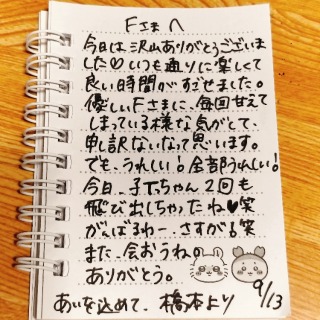 Fさまへ
今日は沢山ありがとうございま
した♡いつも通りに楽しくて
良い時間がすごせました。
優しいFさまに、毎回甘えて
しまっている様な気がして、
申し訳ないなって思います。
でも、うれしい!全部うれしい!
今日、子下ちゃん2回も
飛び出しちゃったね♥笑
がんばるわー、さすが!笑
また、会おうね。
ありがとう。
あいを込めて、橋本より 9/13